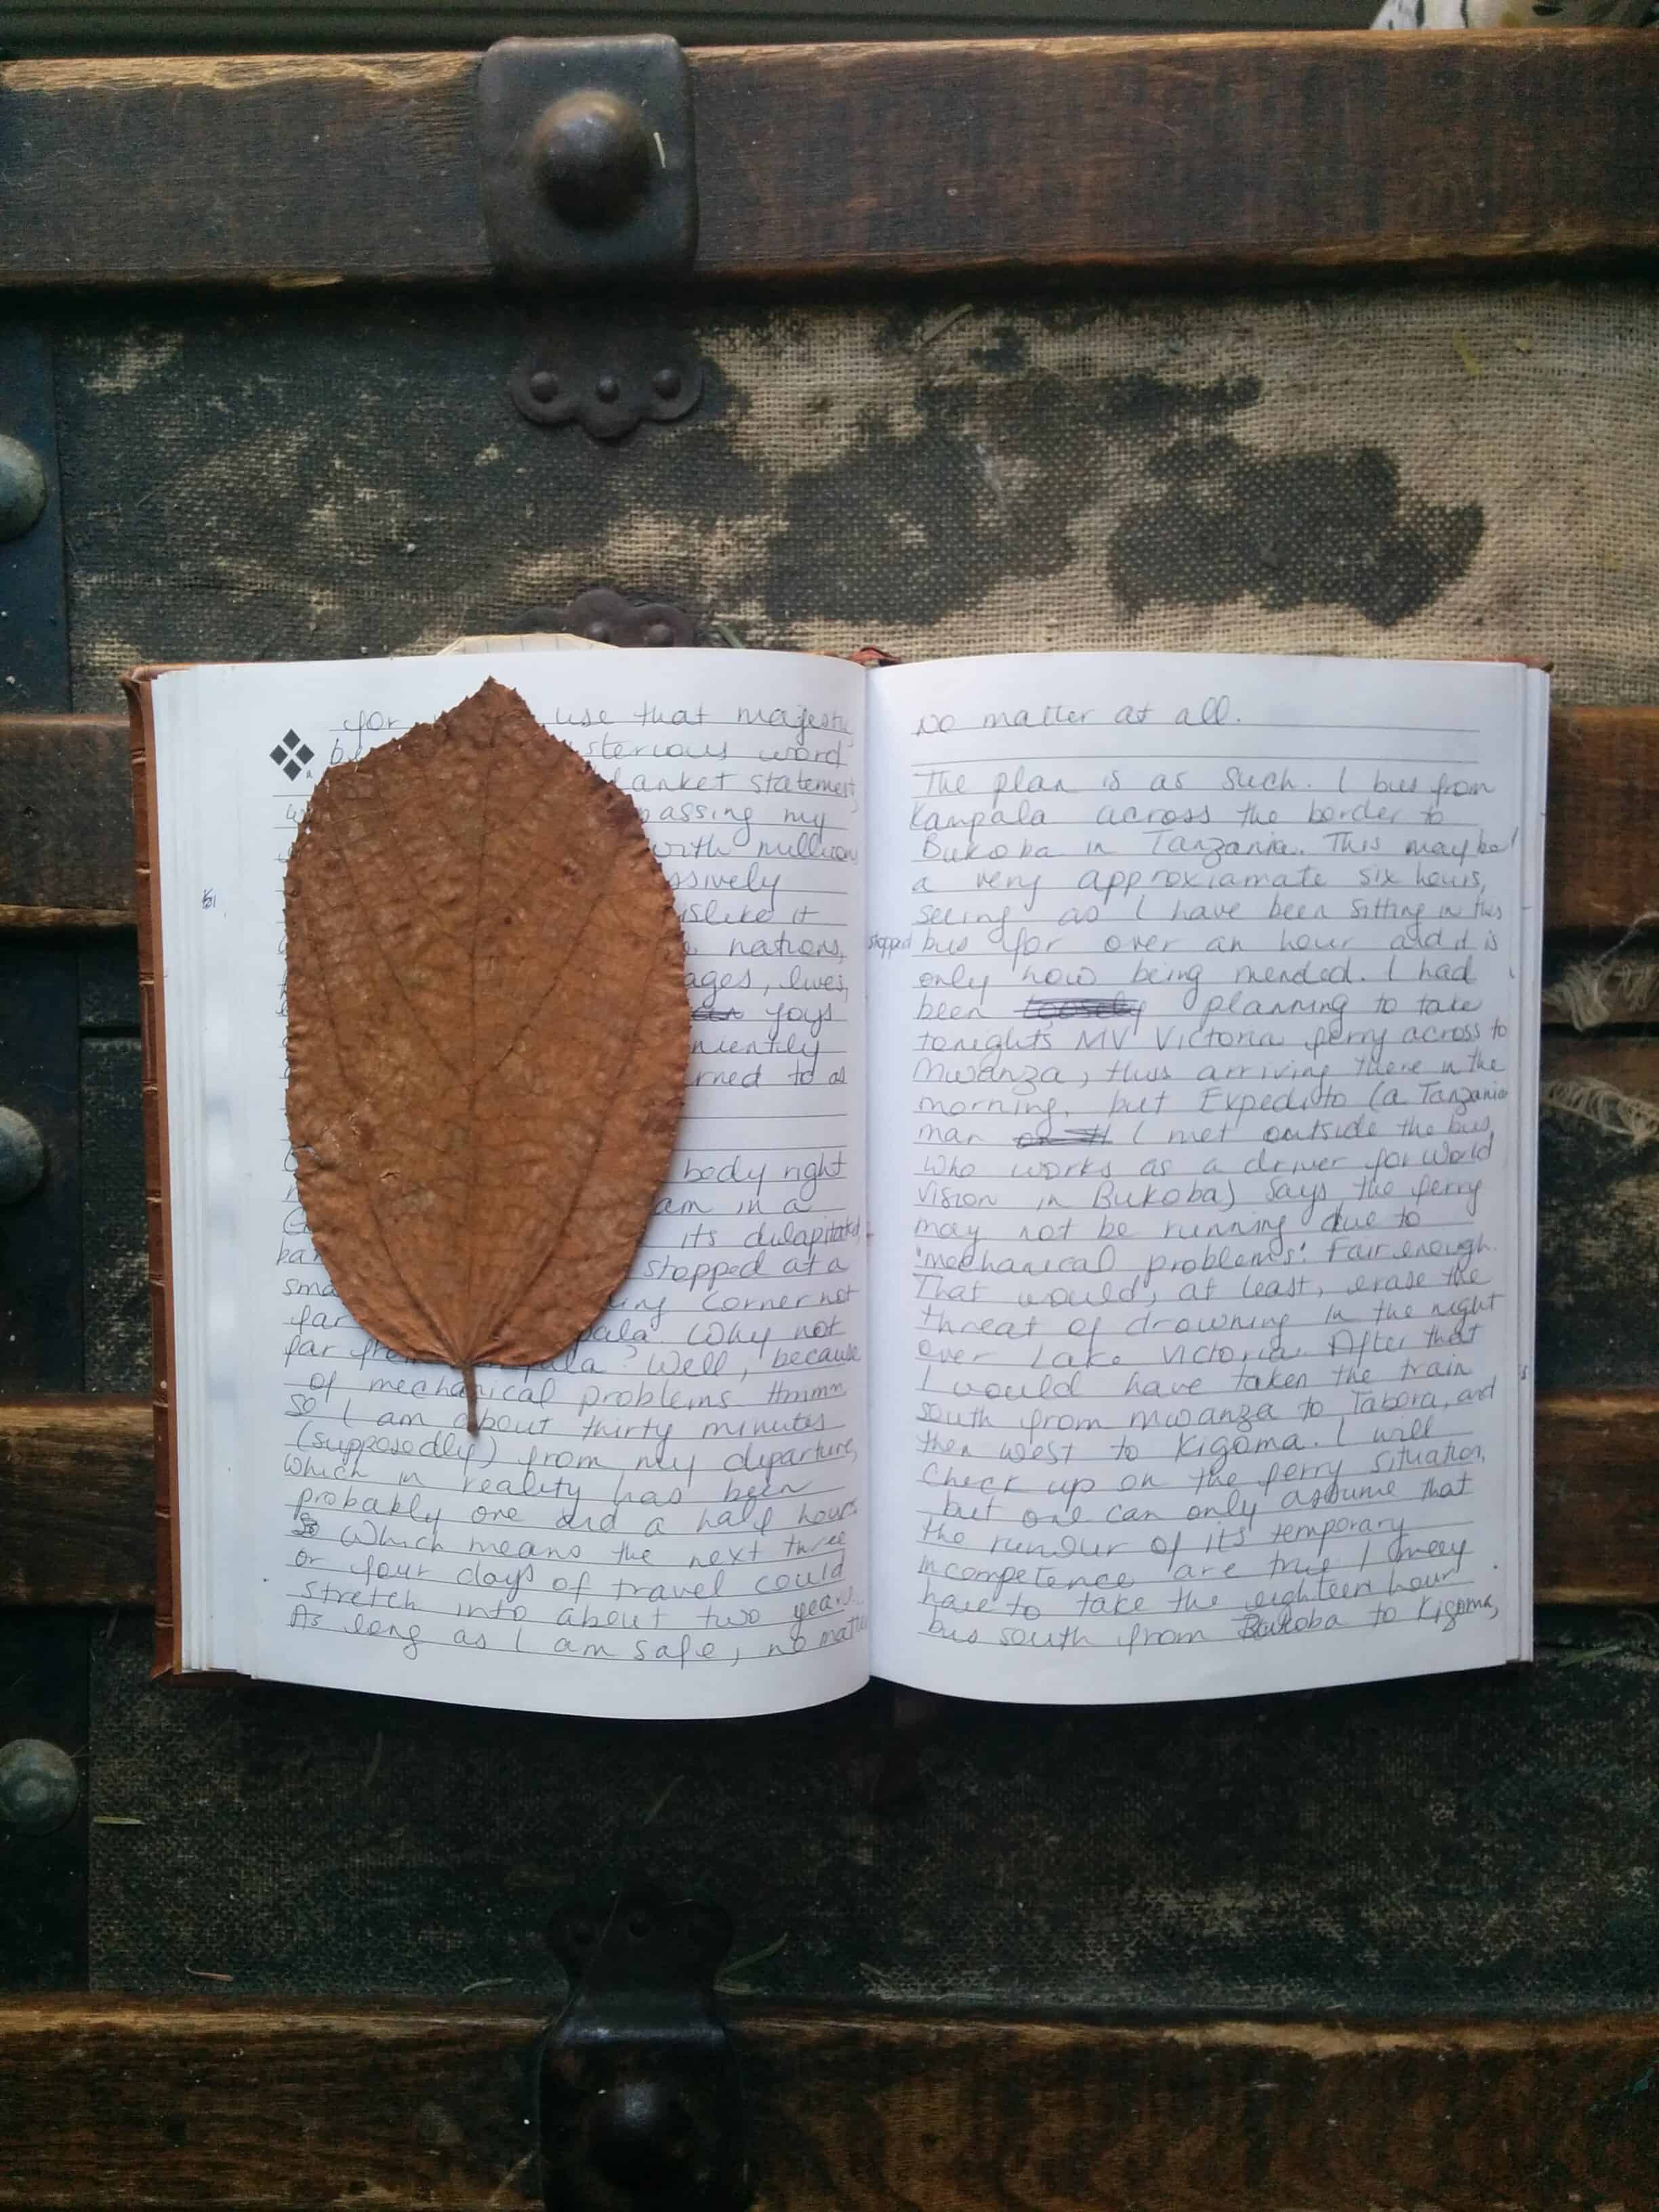 for use that majesty
word
blanket statement,
my
with million
it
nations,
lives,
joys
to as
body right
am in a
its dilapitated,
stopped at a
corner not
far Why not
far from ? Well, because
of mechanical problems. Hmmm
So I am about thirty minutes
(supposedly) from my departure,
which in reality has been
probably one and a half hours.
Which means the next three
or four days of travel could
stretch into about two years.
As long as I am safe, no matter
No matter at all.
The plan is as such. I bus from
Kampala across the border to
Bukoba in Tanzania. This may be
a very approxiamate six hours,
seeing as I have been sitting in this
stopped bus for over an hour and it is
only now being mended. I had
been loosely planning to take
tonights MV Victoria ferry across to
Mwanza, thus arriving there in the
morning, but Expedito (a Tanzanian
man I met outside the bus,
who works as a driver for World
Vision in Bukoba) says the ferry
may not be running due to
'mechanical problems'. Fair enough.
That would, at least, erase the
threat of drowning in the night
over Lake Victoria. After that
I would have taken the train
south from Mwanza to Tabora, and
then west to Kigoma. I will
check up on the ferry situation,
but one can only assume that
the rumour of its temporary
incompetence are true. I may
have to take the eighteen hour
bus south from Bukoba to Kigoma,